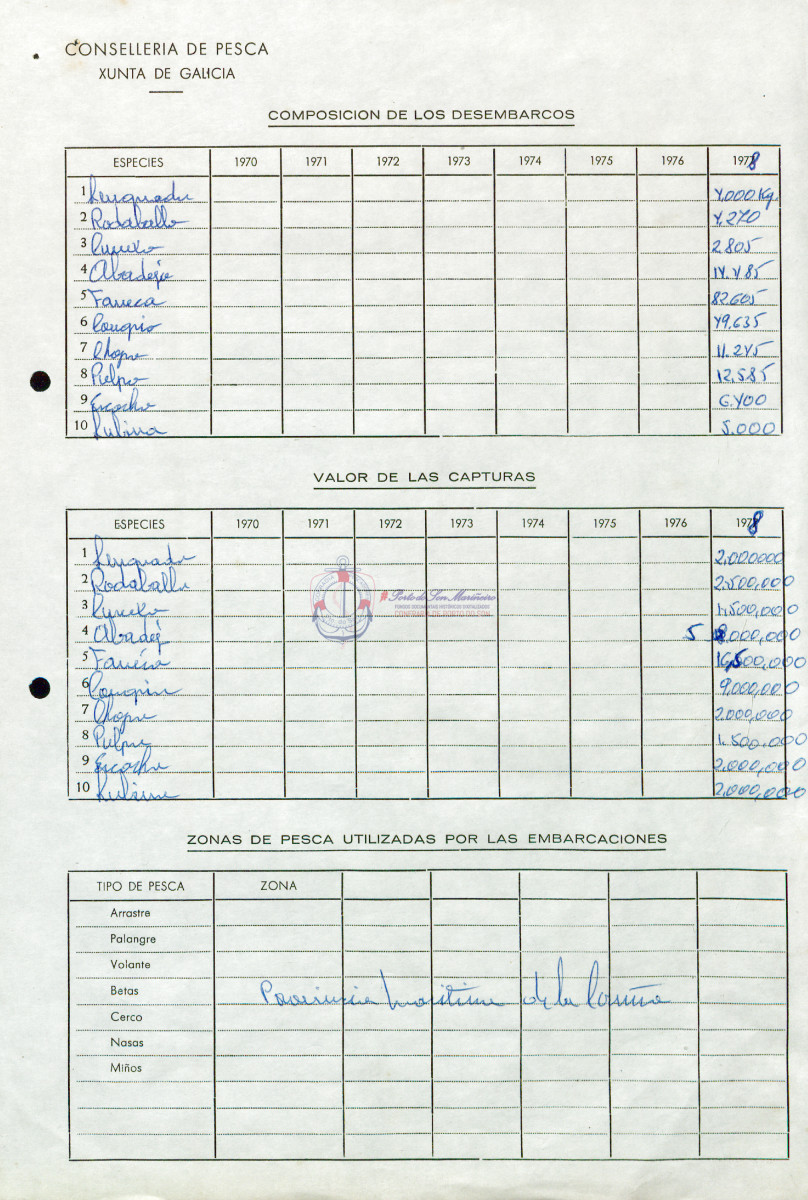 CONSELLERIA DE PESCA
XUNTA DE GALICIA
COMPOSICION DE LOS DESEMBARCOS
ESPECIES 1970 1971 1972 1973 1974 1975 1976 1978
1 Lenguado 4.000 Kg.
2 Rodaballo 4.270
3 2.805
4 Abadejo 14.485
5 Faneca 82.605
6 Congrio 49.635
7 Chopo 11.245
8 Pulpo 12.585
9 Escacho 6.400
10 Lubina 5.000
VALOR DE LAS CAPTURAS
ESPECIES 1970 1971 1972 1973 1974 1975 1976 1978
1 Lenguado 2,000000
2 Rodaballo 2.500,000
3 1.500,000
4 Abadej 5 000,000
5 Faneca 16,500,000
6 Congrio 9,000,000
7 Chopo 2.000,000
8 Pulpo 1.500.000
9 Escacho 2.000,000
10 Lubina 2.000,000
Porto do Son Mariñeiro
ZONAS DE PESCA UTILIZADAS POR LAS EMBARCACIONES
TIPO DE PESCA ZONA
Arrastre
Palangre
Volante
Betas Provincia Maritima de la Coruña
Cerco
Nasas
Miños